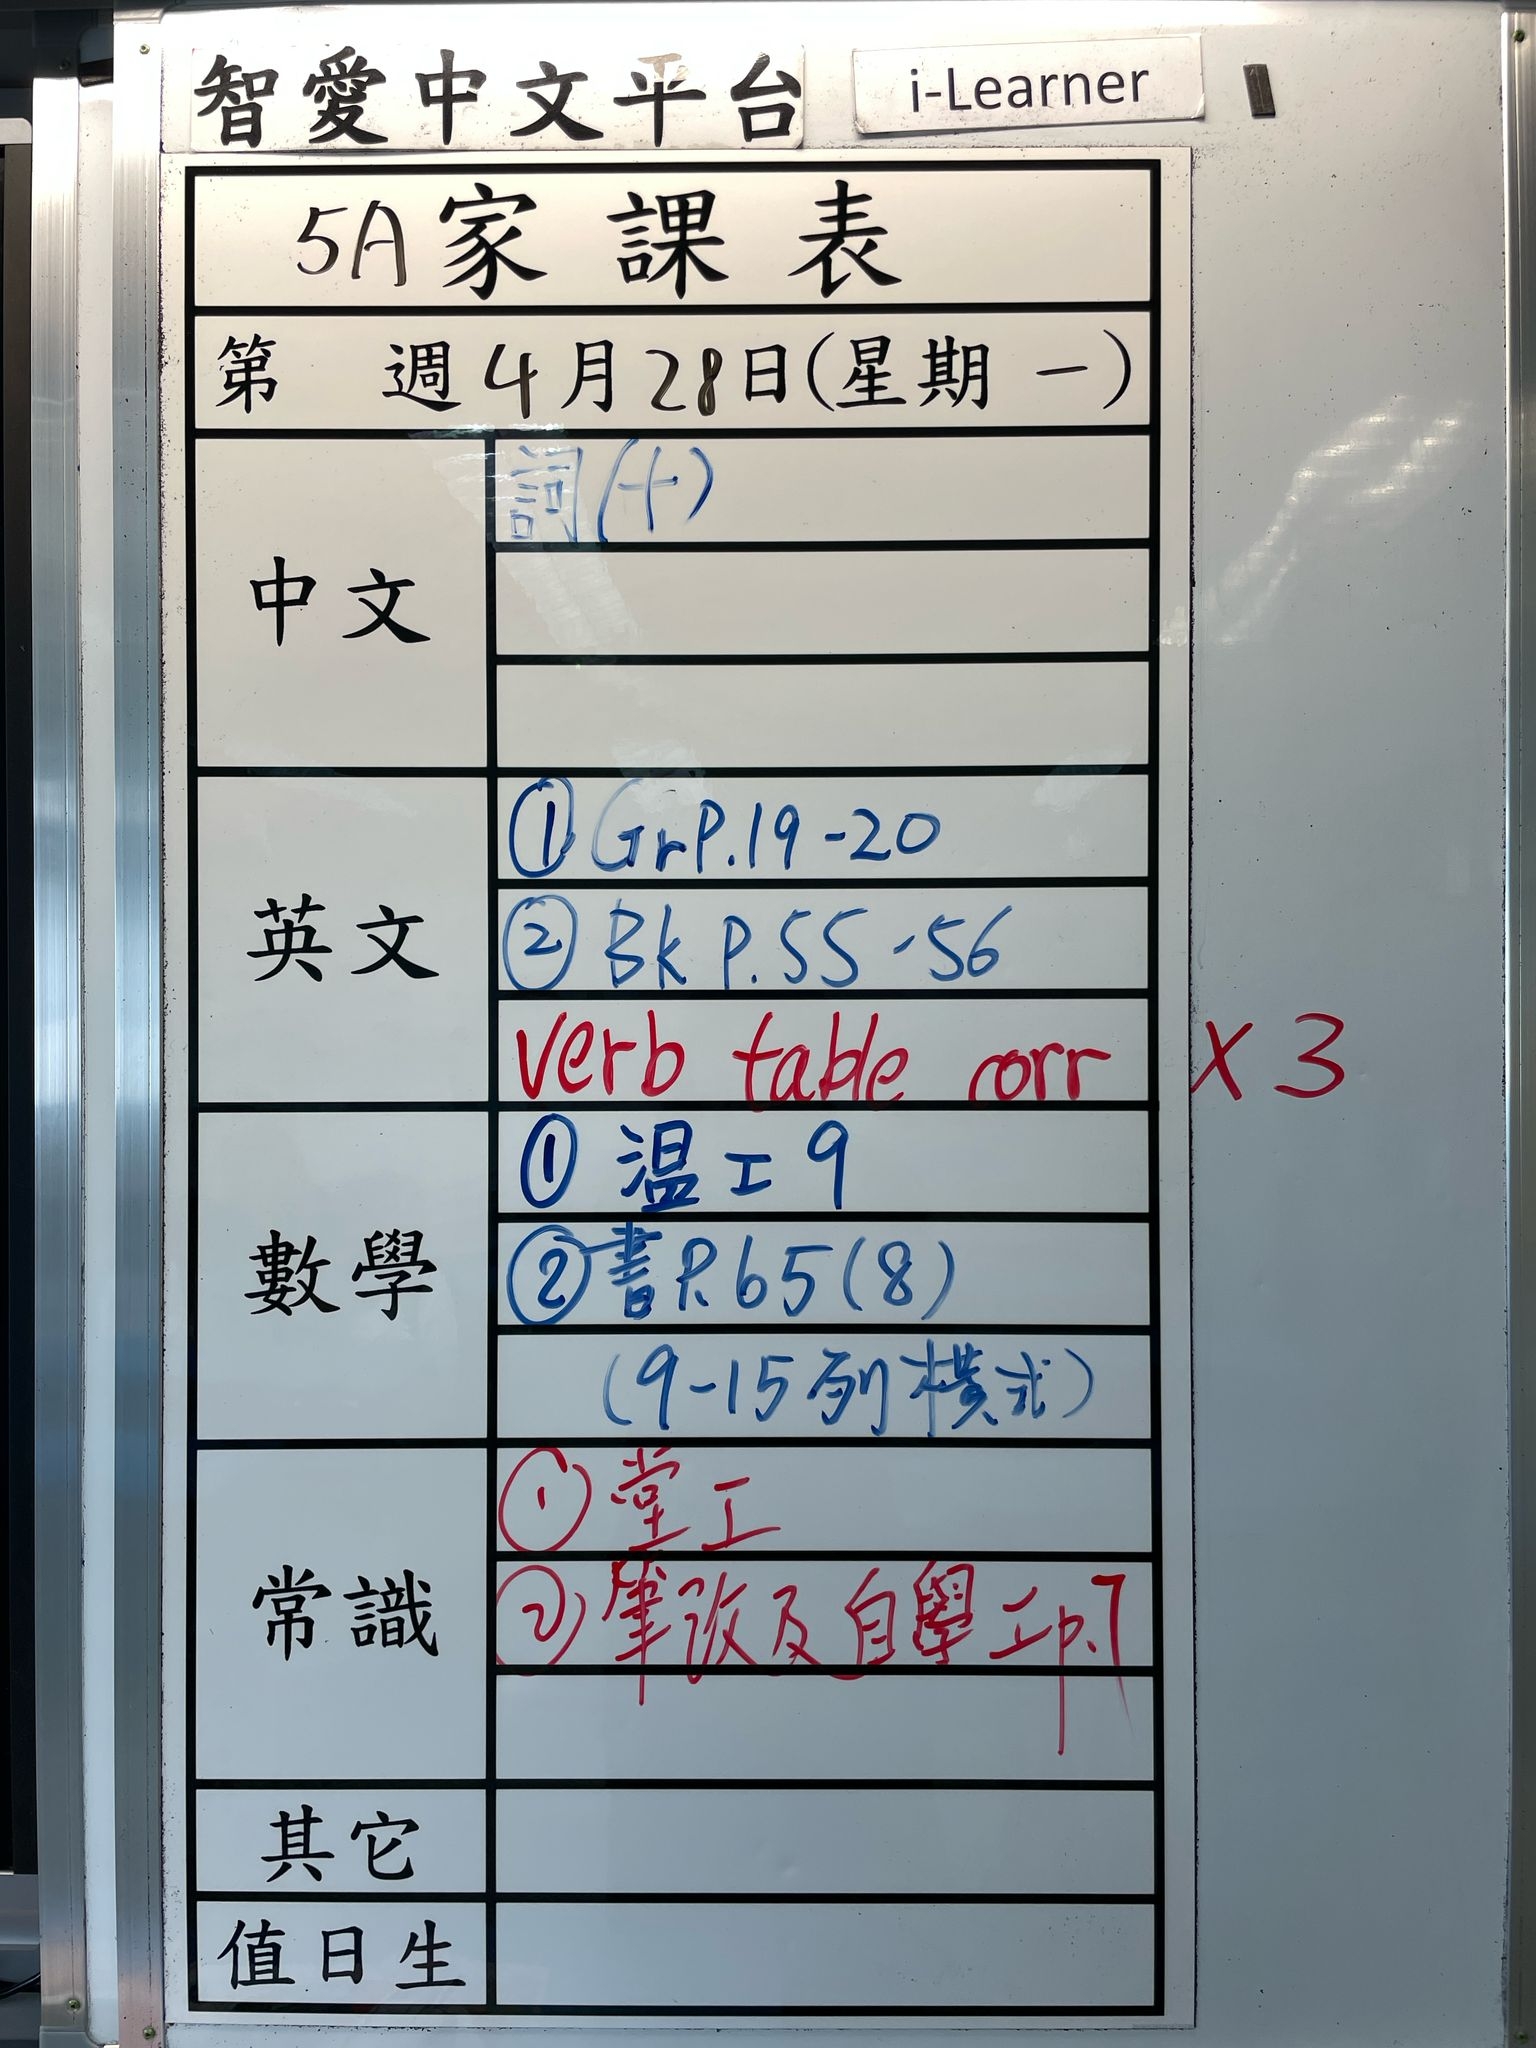 智愛中文平台 i-Learner
5A家課表
第 週4月28日(星期一)
中文
詞(十)
英文
① Gr P.19-20
② Bk P.55-56
verb table corr x3
數學
① 温工9
② 書P.65(8)
(9-15列橫式)
常識
① 堂工
② 筆改及自學工p.7
其它
值日生